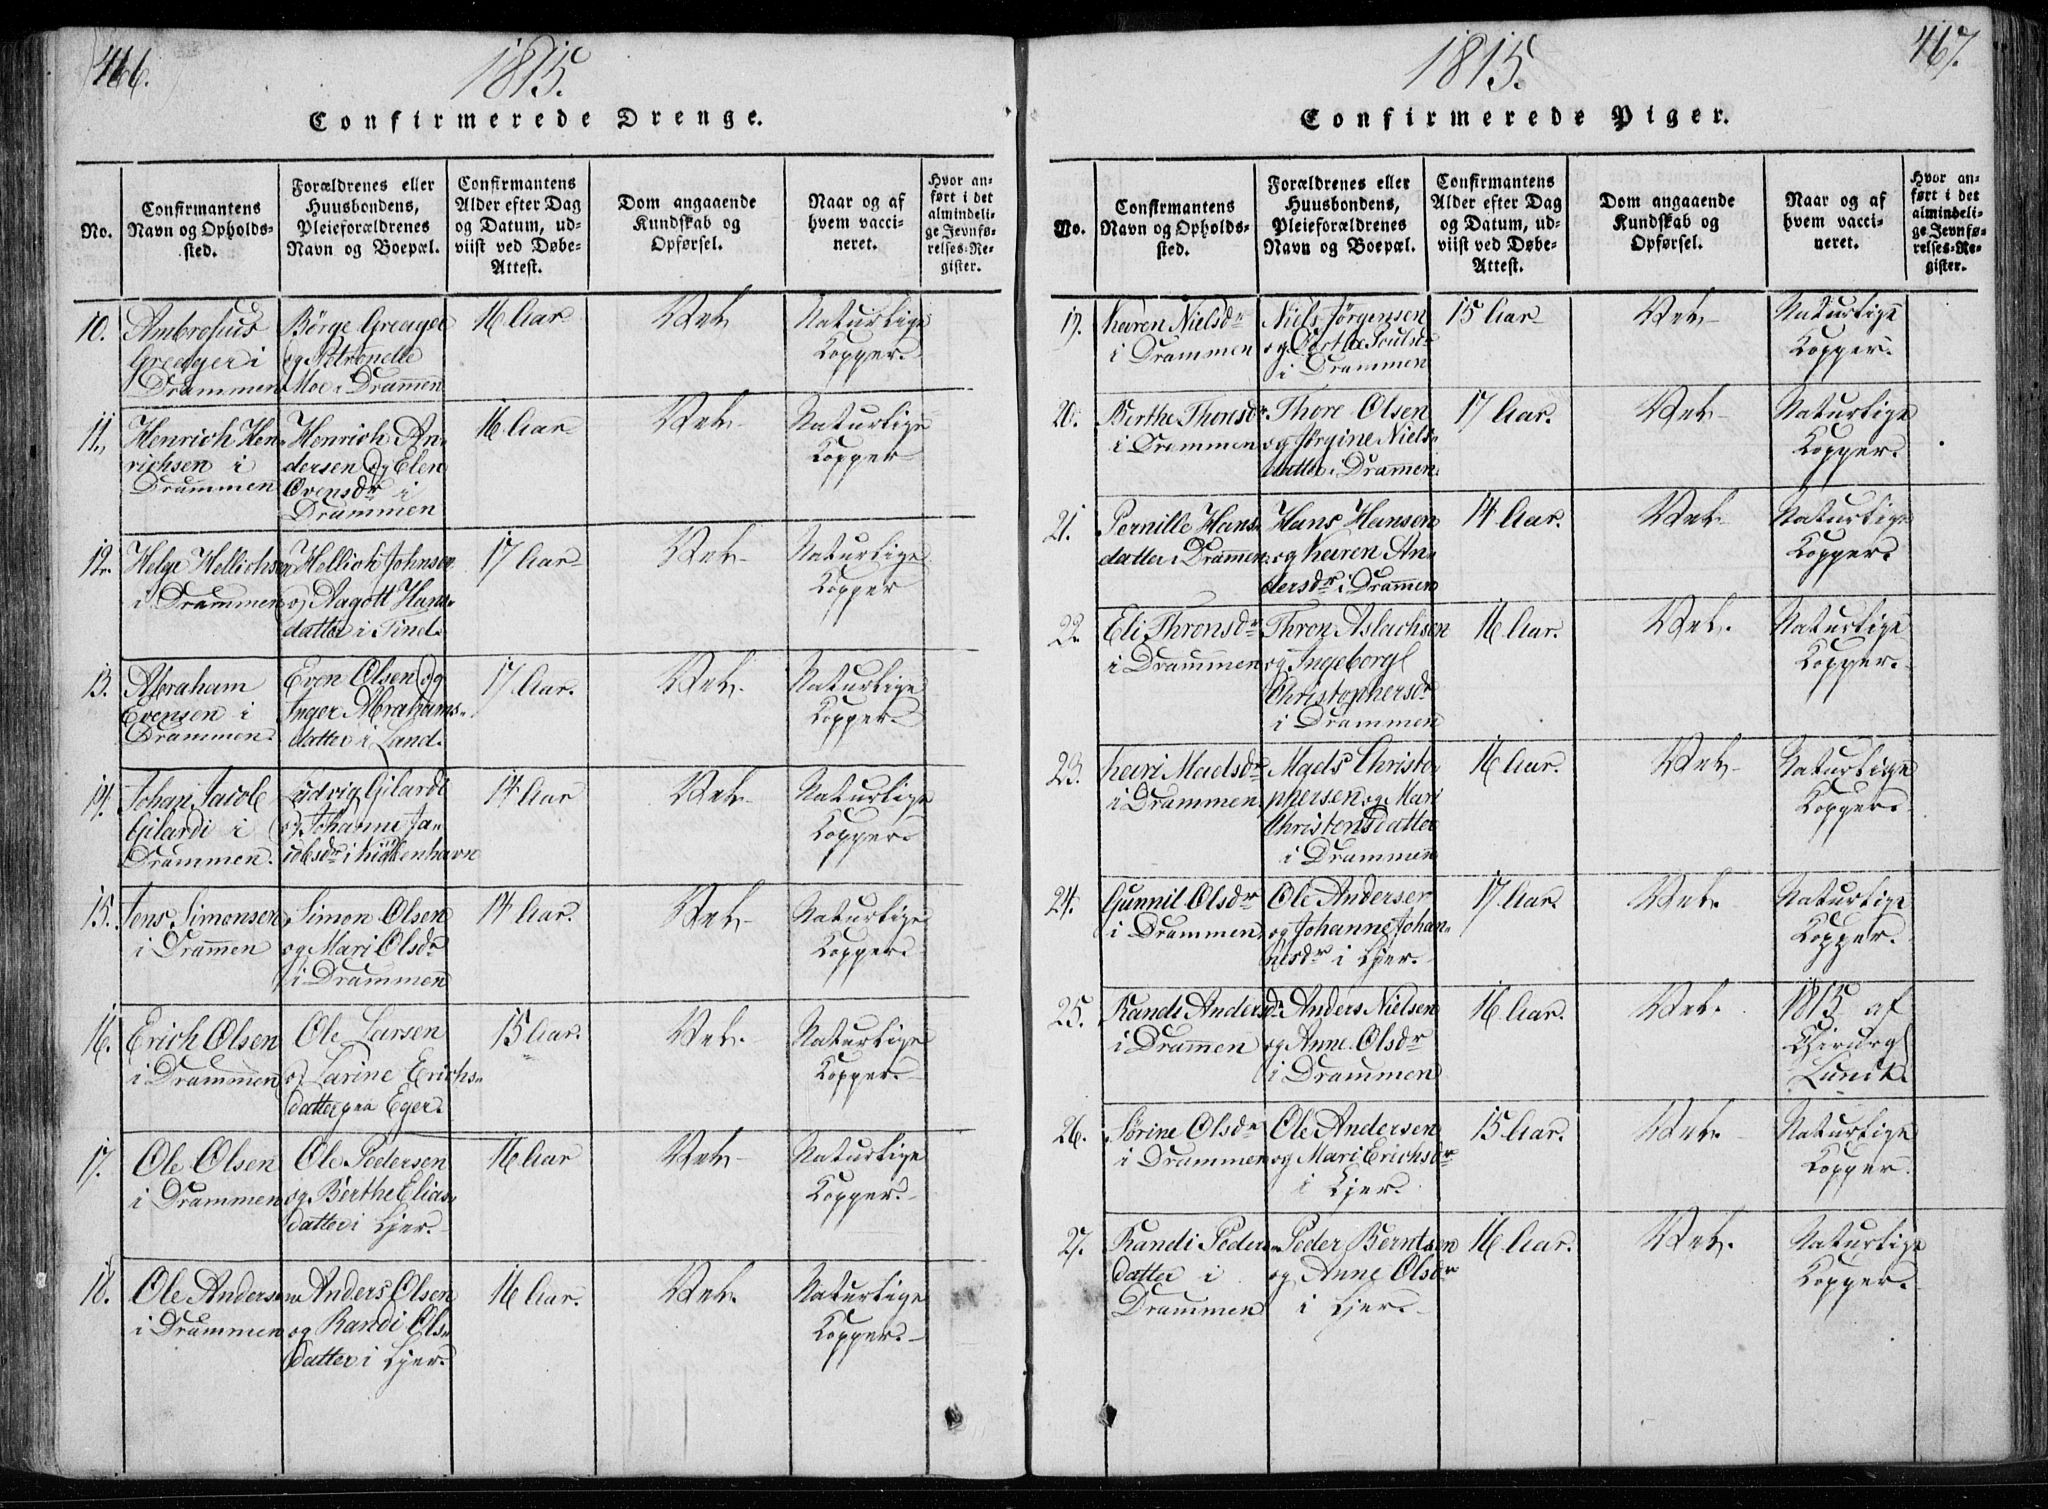 466.
1815.
Confirmerede Drenge.
No.
Confirmantens
Navn og Opholds-
sted.
Forældrenes eller
Huusbondens,
Pleieforældrenes
Navn og Boepæl.
Confirmantens
Alder efter Dag
og Datum, ud-
viist ved Døbe-
Attest.
Dom angaaende
Kundskab og
Opførsel.
Naar og af
hvem vacci-
neret.
Hvor an-
ført i det
almindeli-
ge Jevnfø-
relses-Re-
gister.
10. Ambrosius
Greager i
Drammen
Børge Greager
og Petronelle
Moe i Drammen
16 Aar.
Vel
Naturlige
Kopper.
11. Henrich Hen-
richsen i
Drammen
Henrich An-
dersen og Elen
Ovensdr i
Drammen
16 Aar.
Vel.
Naturlige
Kopper
12. Helge Hellichsen
i Drammen
Hellich Johnsen
og Aagott Hans-
datter i Tind.
17 Aar
Vel.
Naturlige
Kopper
13. Abraham
Evensen i
Drammen.
Even Olsen og
Inger Abrahams-
datter i Land.
17 Aar.
Vel.
Naturlige
Kopper.
14. Johan Jacob
Gilardi i
Drammen.
Ludvig Gilardi
og Johanne Ja-
cobsdr i Kiöbenhavn
14 Aar
Vel.
Naturlige
Kopper.
15. Jens Simonsen
i Drammen
Simon Olsen
og Mari Olsdr
i Drammen
14 Aar.
Vel.
Naturlige
Kopper.
16. Erich Olsen
i Drammen
Ole Larsen
og Karine Erichs-
datter paa Eger.
15 Aar.
Vel.
Naturlige
Kopper.
17. Ole Olsen
i Drammen
Ole Pedersen
og Berthe Elias-
datter i Lier.
16 Aar
Vel.
Naturlige
Kopper.
18. Ole Andersen
i Drammen
Anders Olsen
og Randi Ols-
datter i Lier.
16 Aar.
Vel.
Naturlige
Kopper.
467.
1815.
Confirmerede Piger.
No.
Confirmantens
Navn og Opholds-
sted.
Forældrenes eller
Huusbondens,
Pleieforældrenes
Navn og Boepæl.
Confirmantens
Alder efter Dag
og Datum, ud-
viist ved Døbe-
Attest.
Dom angaaende
Kundskab og
Opførsel.
Naar og af
hvem vacci-
neret.
Hvor an-
ført i det
almindeli-
ge Jevnfø-
relses-Re-
gister.
19. Karen Nielsdr
i Drammen
Niels Jørgensen
og Berthe Poulsdr
i Drammen
15 Aar
Vel.
Naturlige
Kopper.
20. Berthe Thorsdr
i Drammen
Thore Olsen
og Jørgine Niels-
datter i Drammen.
17 Aar.
Vel.
Naturlige
Kopper.
21. Pernille Hans-
datter i Drammen
Hans Hansen
og Karen An-
dersdr i Drammen
14 Aar.
Vel.
Naturlige
Kopper.
22 Eli Thronsdr
i Drammen
Thron Aslachsen
og Ingeborg
Christophersdr
i Drammen
16 Aar.
Vel.
Naturlige
Kopper.
23. Kari Madsdr
i Drammen
Mads Christo-
phersen og Mari
Christensdatter
i Drammen
16 Aar.
Vel.
Naturlige
Kopper.
24. Gunnil Olsdr
i Drammen
Ole Andersen
og Johanne Johan-
nesdr i Lier.
17 Aar.
Vel.
Naturlige
Kopper.
25. Randi Andersdr
i Drammen
Anders Nielsen
og Anne Olsdr
i Drammen
16 Aar.
Vel.
1815 af
Chirurg
Lundt.
26. Sørine Olsdr
i Drammen
Ole Andersen
og Mari Erichsdr
i Lier.
15 Aar.
Vel.
Naturlige
Kopper.
27. Randi Peders-
datter i
Drammen
Peder Berntsen
og Anne Olsdr
i Lier.
16 Aar.
Vel.
Naturlige
Kopper.